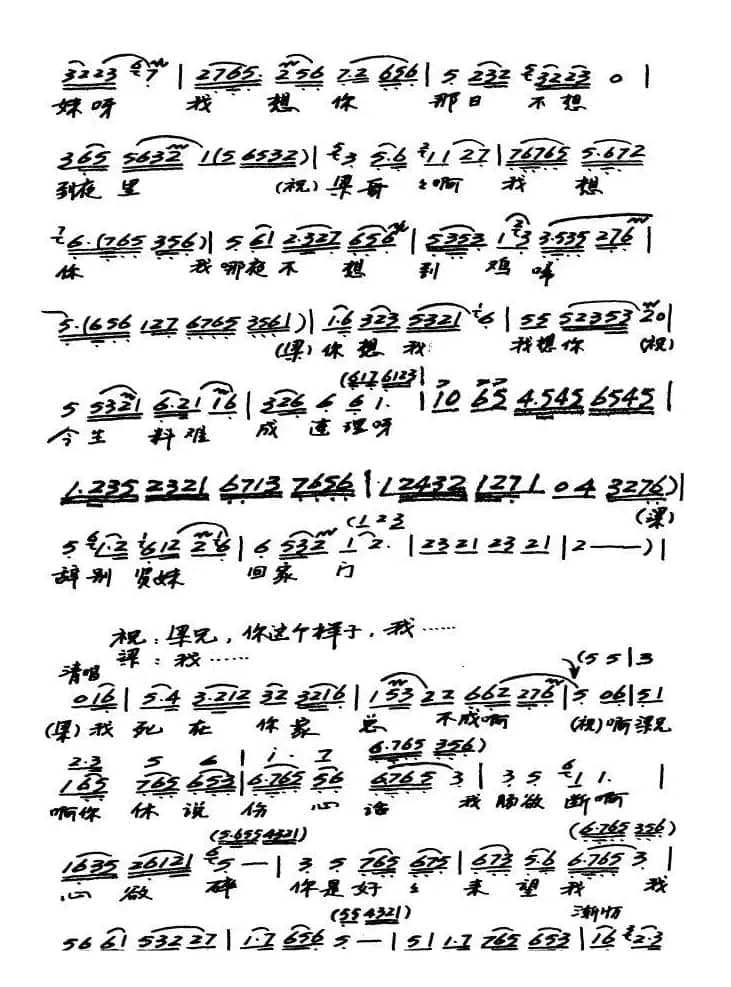 3223 6 7 | 2765. 256 7.2 656 | 5 232 53223 0 |
妹呀 我 想 你 那日 不想
365 5632 1(5 6532) | 53 5.6 211 27 | 76765 5.672
到夜里 (祝)梁哥 ㄑ啊 我 想
76.(765 356) | 5 61 2.327 656 | 5352 1 23 3.535 276 |
你 我哪夜不 想 到 鸡啼
5.(656 127 6765 3561) | 1.6 323 5321 16 | 55 52353 20 |
(梁)你想我 我想你 (祝)
(617 6123)
5 5321 6.21 16 | 326 6 6 1. | 10 65 4.545 6545 |
今生 料难 成 连理呀
1.235 2321 6713 7656 | 1.2432 1271 04 3276) |
(梁)
(123
5 61.2 1612 216 | 6 532 1 2. | 2321 2321 | 2——) |
辞别贤妹 回家 门
祝：梁兄，你这个样子，我……
梁：我……
清唱
(55 | 3
016 | 5.4 3.212 32 3216 | 153 22 662 276 | 5 06 | 51
(梁)我死在 你家 总 不成啊 (祝)啊梁兄
2.3 5 6 | i. 7 6.765 356)
165 765 653 | 6.765 56 6765 3 | 3 5 61 1. |
啊你 休说伤心话 我肠欲断啊
(5.655 4321) (6.765 356)
1635 26121 65— | 3 5 765 675 | 673 5.6 6.765 3 |
心欲 碎 你是好ㄑ 来望我 我
(55 4321) 渐慢
56 61 532 27 | 1.7 656 5— | 51 1.7 765 653 | 16 22.3